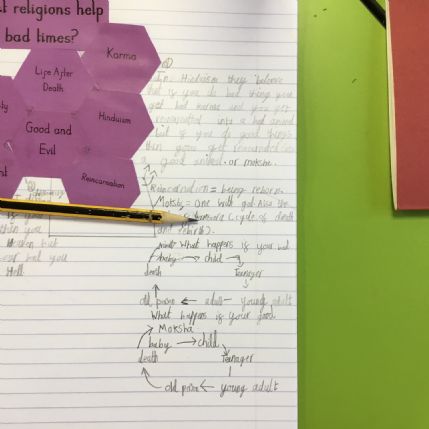 t religions help
bad times?
Karma
Life After
Death
Hinduism
Good and
Evil
Reincarnation
In Hinduism they believe
that is you do bad things you
get bad karma and you get
reincarnated into a bad animal
but if you do good things
then you get reincarnated into
a good animal. or moksha.
Reincarnation = being reborn.
Moksha = one with god. Also the
samsara (cycle of death
and rebirth).
What happens is your bad
baby → child
death
Teenager
old person ← adult – young adult
What happens is your good
Moksha
baby → child
death
Teenager
old person ← young adult
is you
then you
Heaven but
bad you
Hell